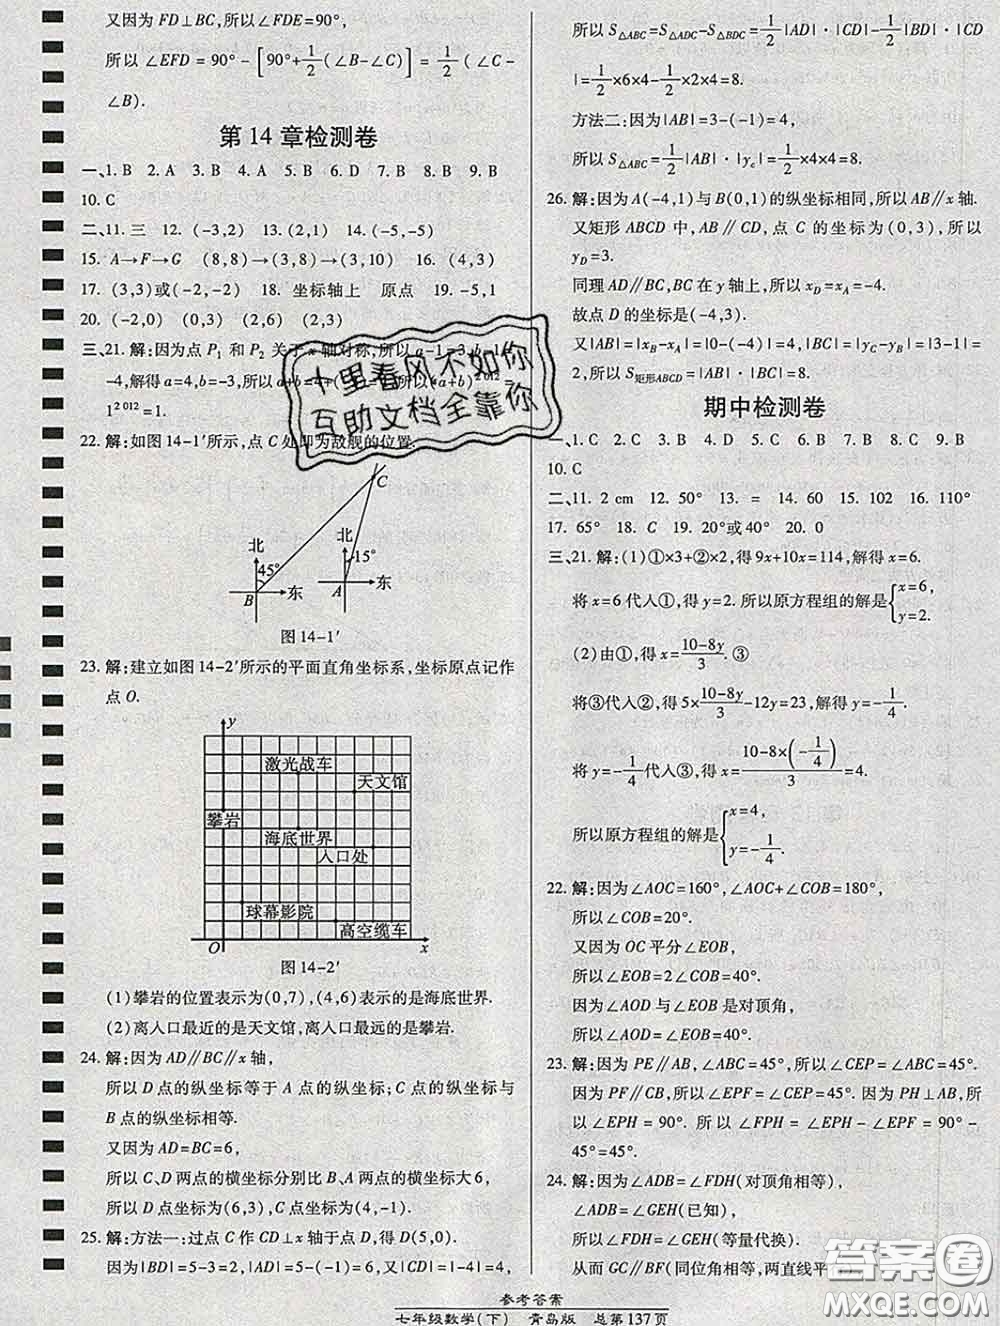 又因为 FD⊥BC,所以∠FDE=90°,
所以∠EFD=90°-[90°+1/2(∠B-∠C)]=1/2(∠C-
∠B).
第 14 章检测卷
一、1. B 2. A 3. B 4. A 5. B 6. D 7. B 8. B 9. B
10. C
二、11. 三 12. (-3,2) 13. (2,1) 14. (-5,-5)
15. A→F→G (8,8)→(3,8)→(3,4) 16. (4,3)
17. (3,3)或(-2,-2) 18. 坐标轴上 原点 19. -5,1
20. (-2,0) (0,3) (2,6) (2,3)
三、21. 解:因为点 P₁ 和 P₂ 关于 x 轴对称,所以 a-1=3,b-1=
-4,解得 a=4,b=-3,所以 a+b=4+(-3)=1,所以(a+b)²⁰¹²=
1²⁰¹²=1.
22. 解:如图 14-1′所示,点 C 处即为敌舰的位置.
十里春风不如你
互助文档全靠你
C
北 北
45° 15°
B 东 A 东
图 14-1′
23. 解:建立如图 14-2′所示的平面直角坐标系,坐标原点记作
点 O.
y
激光战车
天文馆
攀岩
海底世界
入口处
球幕影院
高空缆车
O x
图 14-2′
(1)攀岩的位置表示为(0,7),(4,6)表示的是海底世界.
(2)离入口最近的是天文馆,离入口最远的是攀岩.
24. 解:因为 AD∥BC∥x 轴,
所以 D 点的纵坐标等于 A 点的纵坐标;C 点的纵坐标与
B 点的纵坐标相等.
又因为 AD=BC=6,
所以 C、D 两点的横坐标分别比 B、A 两点的横坐标大 6,
所以 D 点坐标为(6,3),C 点坐标为(4,-1).
25. 解:方法一:过点 C 作 CD⊥x 轴于点 D,得 D(5,0).
因为|BD|=5-3=2,|AD|=5-(-1)=6,又|CD|=|-4|=4,
所以 S△ABC=S△ADC-S△BDC=1/2|AD|·|CD|-1/2|BD|·|CD
|=1/2×6×4-1/2×2×4=8.
方法二:因为|AB|=3-(-1)=4,
所以 S△ABC=1/2|AB|·|yc|=1/2×4×4=8.
26. 解:因为 A(-4,1)与 B(0,1)的纵坐标相同,所以 AB∥x 轴.
又矩形 ABCD 中,AB∥CD,点 C 的坐标为(0,3),所以
yD=3.
同理 AD∥BC,BC 在 y 轴上,所以 xD=xA=-4.
故点 D 的坐标是(-4,3).
又|AB|=|xB-xA|=|0-(-4)|=4,|BC|=|yC-yB|=|3-1|=
2,所以 S矩形ABCD=|AB|·|BC|=8.
期中检测卷
一、1. C 2. C 3. B 4. D 5. C 6. C 7. B 8. C 9. B
10. C
二、11. 2 cm 12. 50° 13. = 14. 4 15. 102 16. 110°
17. 65° 18. C 19. 20°或 40° 20. 0
三、21. 解:(1)①×3+②×2,得 9x+10x=114,解得 x=6.
将 x=6 代入①,得 y=2. 所以原方程组的解是{x=6, y=2.
(2)由①,得 x=(10-8y)/3. ③
将③代入②,得 5×(10-8y)/3-12y=23,解得 y=-1/4.
将 y=-1/4代入③,得 x=(10-8×(-1/4))/3=4.
所以原方程组的解是{x=4, y=-1/4.
22. 解:因为∠AOC=160°,∠AOC+∠COB=180°,
所以∠COB=20°.
又因为 OC 平分∠EOB,
所以∠EOB=2∠COB=40°.
因为∠AOD 与∠EOB 是对顶角,
所以∠AOD=∠EOB=40°.
23. 解:因为 PE∥AB,∠ABC=45°,所以∠CEP=∠ABC=45°.
因为 PF∥CB,所以∠EPF=∠CEP=45°. 因为 PH⊥AB,所
以∠EPH=90°. 所以∠FPH=∠EPH-∠EPF=90°-
45°=45°.
24. 解:因为∠ADB=∠FDH(对顶角相等),
∠ADB=∠GEH(已知),
所以∠FDH=∠GEH(等量代换).
从而 GC∥BF(同位角相等,两直线平
答案圈
MXQE.COM
参考答案
七年级数学(下) 青岛版 总第 137 页